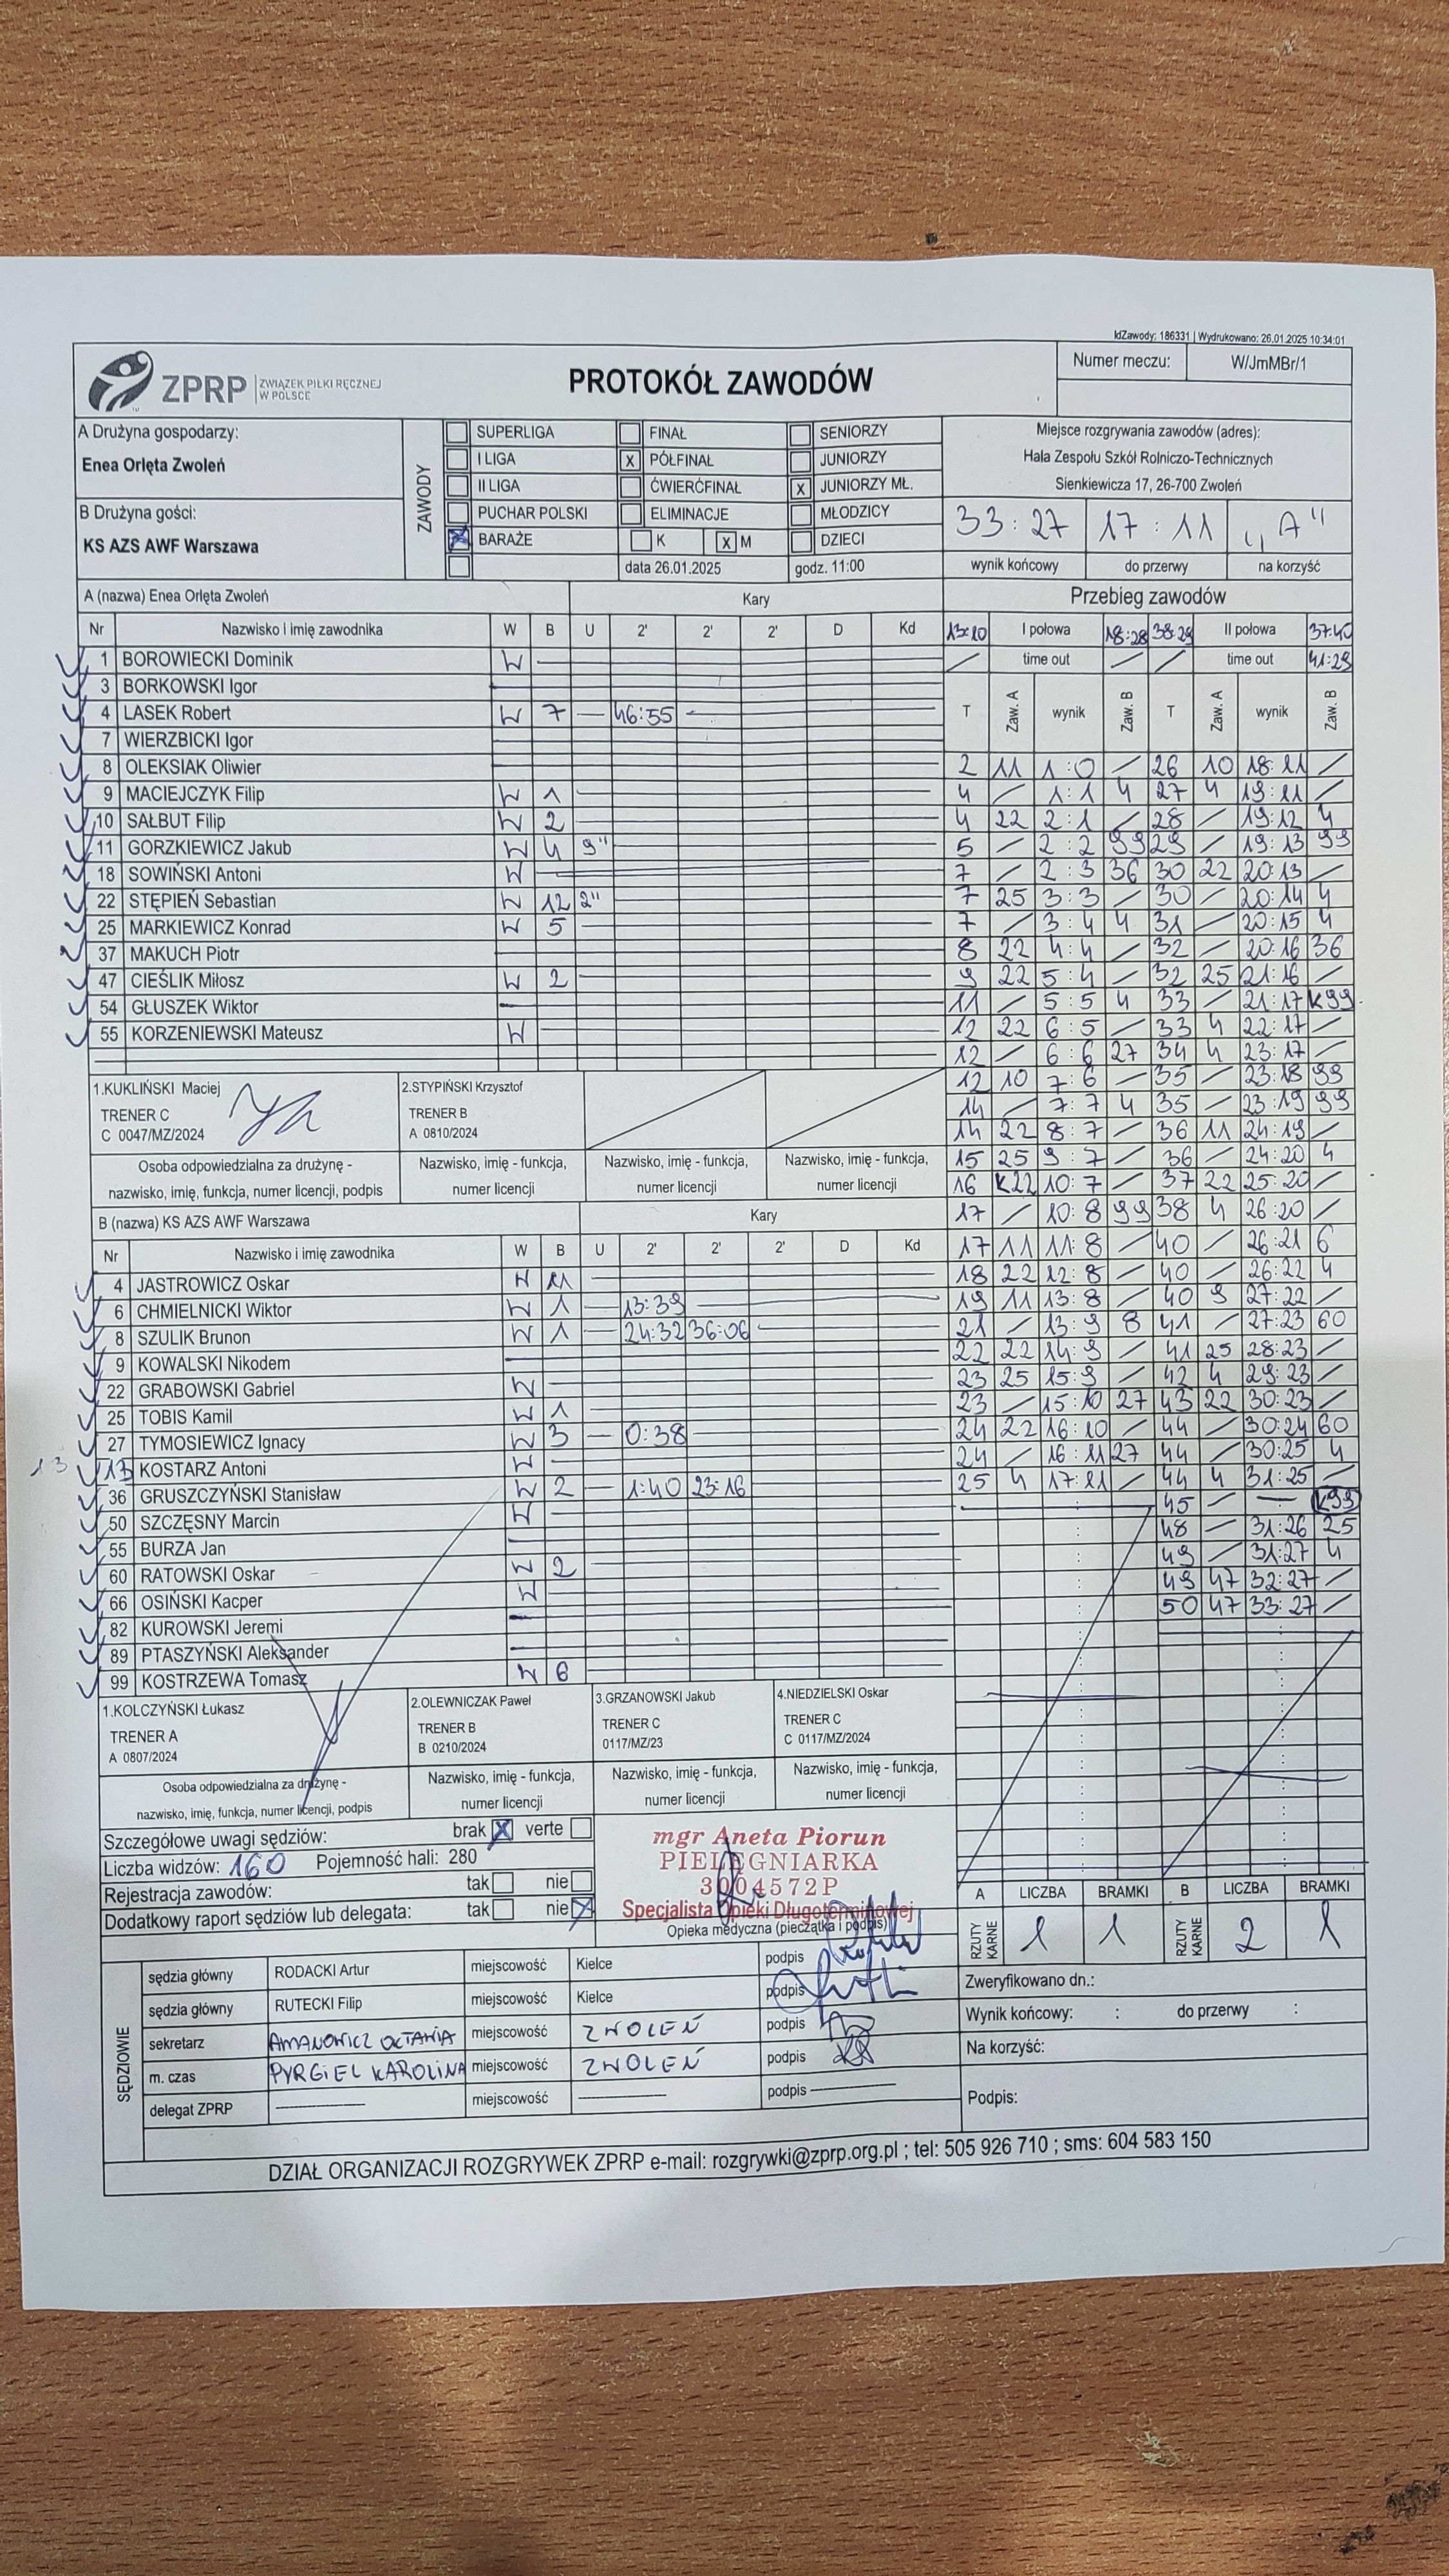 IdZawody: 186331 | Wydrukowano: 26.01.2025 10:34:01
ZPRP ZWIĄZEK PIŁKI RĘCZNEJ W POLSCE
PROTOKÓŁ ZAWODÓW
Numer meczu: W/JmMBr/1
A Drużyna gospodarzy:
Enea Orlęta Zwoleń
B Drużyna gości:
KS AZS AWF Warszawa
ZAWODY
SUPERLIGA FINAŁ SENIORZY
I LIGA X PÓŁFINAŁ JUNIORZY
II LIGA ĆWIERĆFINAŁ X JUNIORZY MŁ.
PUCHAR POLSKI ELIMINACJE MŁODZICY
X BARAŻE K X M DZIECI
data 26.01.2025 godz. 11:00
Miejsce rozgrywania zawodów (adres):
Hala Zespołu Szkół Rolniczo-Technicznych
Sienkiewicza 17, 26-700 Zwoleń
33:27 17:11 „A"
wynik końcowy do przerwy na korzyść
A (nazwa) Enea Orlęta Zwoleń Kary
Nr Nazwisko i imię zawodnika W B U 2' 2' 2' D Kd
1 BOROWIECKI Dominik W
3 BORKOWSKI Igor
4 LASEK Robert W 7 — 46:55
7 WIERZBICKI Igor
8 OLEKSIAK Oliwier
9 MACIEJCZYK Filip W 1
10 SAŁBUT Filip W 2
11 GORZKIEWICZ Jakub W 4 9"
18 SOWIŃSKI Antoni W
22 STĘPIEŃ Sebastian W 12 2"
25 MARKIEWICZ Konrad W 5
37 MAKUCH Piotr
47 CIEŚLIK Miłosz W 2
54 GŁUSZEK Wiktor
55 KORZENIEWSKI Mateusz W
1.KUKLIŃSKI Maciej
TRENER C
C 0047/MZ/2024
2.STYPIŃSKI Krzysztof
TRENER B
A 0810/2024
Osoba odpowiedzialna za drużynę -
nazwisko, imię, funkcja, numer licencji, podpis
Nazwisko, imię - funkcja,
numer licencji
Nazwisko, imię - funkcja,
numer licencji
Nazwisko, imię - funkcja,
numer licencji
B (nazwa) KS AZS AWF Warszawa Kary
Nr Nazwisko i imię zawodnika W B U 2' 2' 2' D Kd
4 JASTROWICZ Oskar W 11
6 CHMIELNICKI Wiktor W 1 — 13:39
8 SZULIK Brunon W 1 — 24:32 36:06
9 KOWALSKI Nikodem
22 GRABOWSKI Gabriel W
25 TOBIS Kamil W 1
27 TYMOSIEWICZ Ignacy W 3 — 0:38
13 13 KOSTARZ Antoni W
36 GRUSZCZYŃSKI Stanisław W 2 — 1:40 23:16
50 SZCZĘSNY Marcin W
55 BURZA Jan
60 RATOWSKI Oskar W 2
66 OSIŃSKI Kacper W
82 KUROWSKI Jeremi
89 PTASZYŃSKI Aleksander
99 KOSTRZEWA Tomasz W 6
1.KOLCZYŃSKI Łukasz
TRENER A
A 0807/2024
2.OLEWNICZAK Paweł
TRENER B
B 0210/2024
3.GRZANOWSKI Jakub
TRENER C
0117/MZ/23
4.NIEDZIELSKI Oskar
TRENER C
C 0117/MZ/2024
Osoba odpowiedzialna za drużynę -
nazwisko, imię, funkcja, numer licencji, podpis
Nazwisko, imię - funkcja,
numer licencji
Nazwisko, imię - funkcja,
numer licencji
Nazwisko, imię - funkcja,
numer licencji
Przebieg zawodów
13:10 I połowa 18:28 38:29 II połowa 37:40
/ time out / / time out 41:29
T Zaw. A wynik Zaw. B T Zaw. A wynik Zaw. B
2 11 1:0 / 26 10 18:11 /
4 / 1:1 4 27 4 19:11 /
4 22 2:1 / 28 / 19:12 4
5 / 2:2 99 29 / 19:13 99
7 / 2:3 36 30 22 20:13 /
7 25 3:3 / 30 / 20:14 4
7 / 3:4 4 31 / 20:15 4
8 22 4:4 / 32 / 20:16 36
9 22 5:4 / 32 25 21:16 /
11 / 5:5 4 33 / 21:17 K99
12 22 6:5 / 33 4 22:17 /
12 / 6:6 27 34 4 23:17 /
12 10 7:6 / 35 / 23:18 99
14 / 7:7 4 35 / 23:19 99
14 22 8:7 / 36 11 24:19 /
15 25 9:7 / 36 / 24:20 4
16 K22 10:7 / 37 22 25:20 /
17 / 10:8 99 38 4 26:20 /
17 11 11:8 / 40 / 26:21 6
18 22 12:8 / 40 / 26:22 4
19 11 13:8 / 40 9 27:22 /
21 / 13:9 8 41 / 27:23 60
22 22 14:9 / 41 25 28:23 /
23 25 15:9 / 42 4 29:23 /
23 / 15:10 27 43 22 30:23 /
24 22 16:10 / 44 / 30:24 60
24 / 16:11 27 44 / 30:25 4
25 4 17:11 / 44 4 31:25 /
45 / — K99
48 / 31:26 25
49 / 31:27 4
49 47 32:27 /
50 47 33:27 /
Szczegółowe uwagi sędziów: brak X verte
Liczba widzów: 160 Pojemność hali: 280
Rejestracja zawodów: tak nie
Dodatkowy raport sędziów lub delegata: tak nie X
mgr Aneta Piorun
PIELĘGNIARKA
3004572P
Specjalista Opieki Długoterminowej
Opieka medyczna (pieczątka i podpis)
A LICZBA BRAMKI B LICZBA BRAMKI
RZUTY KARNE 1 1 RZUTY KARNE 2 1
SĘDZIOWIE
sędzia główny RODACKI Artur miejscowość Kielce podpis
sędzia główny RUTECKI Filip miejscowość Kielce podpis
sekretarz AMANOWICZ OCTAWIA miejscowość ZWOLEŃ podpis
m. czas PYRGIEL KAROLINA miejscowość ZWOLEŃ podpis
delegat ZPRP miejscowość podpis
Zweryfikowano dn.:
Wynik końcowy: : do przerwy :
Na korzyść:
Podpis:
DZIAŁ ORGANIZACJI ROZGRYWEK ZPRP e-mail: rozgrywki@zprp.org.pl ; tel: 505 926 710 ; sms: 604 583 150